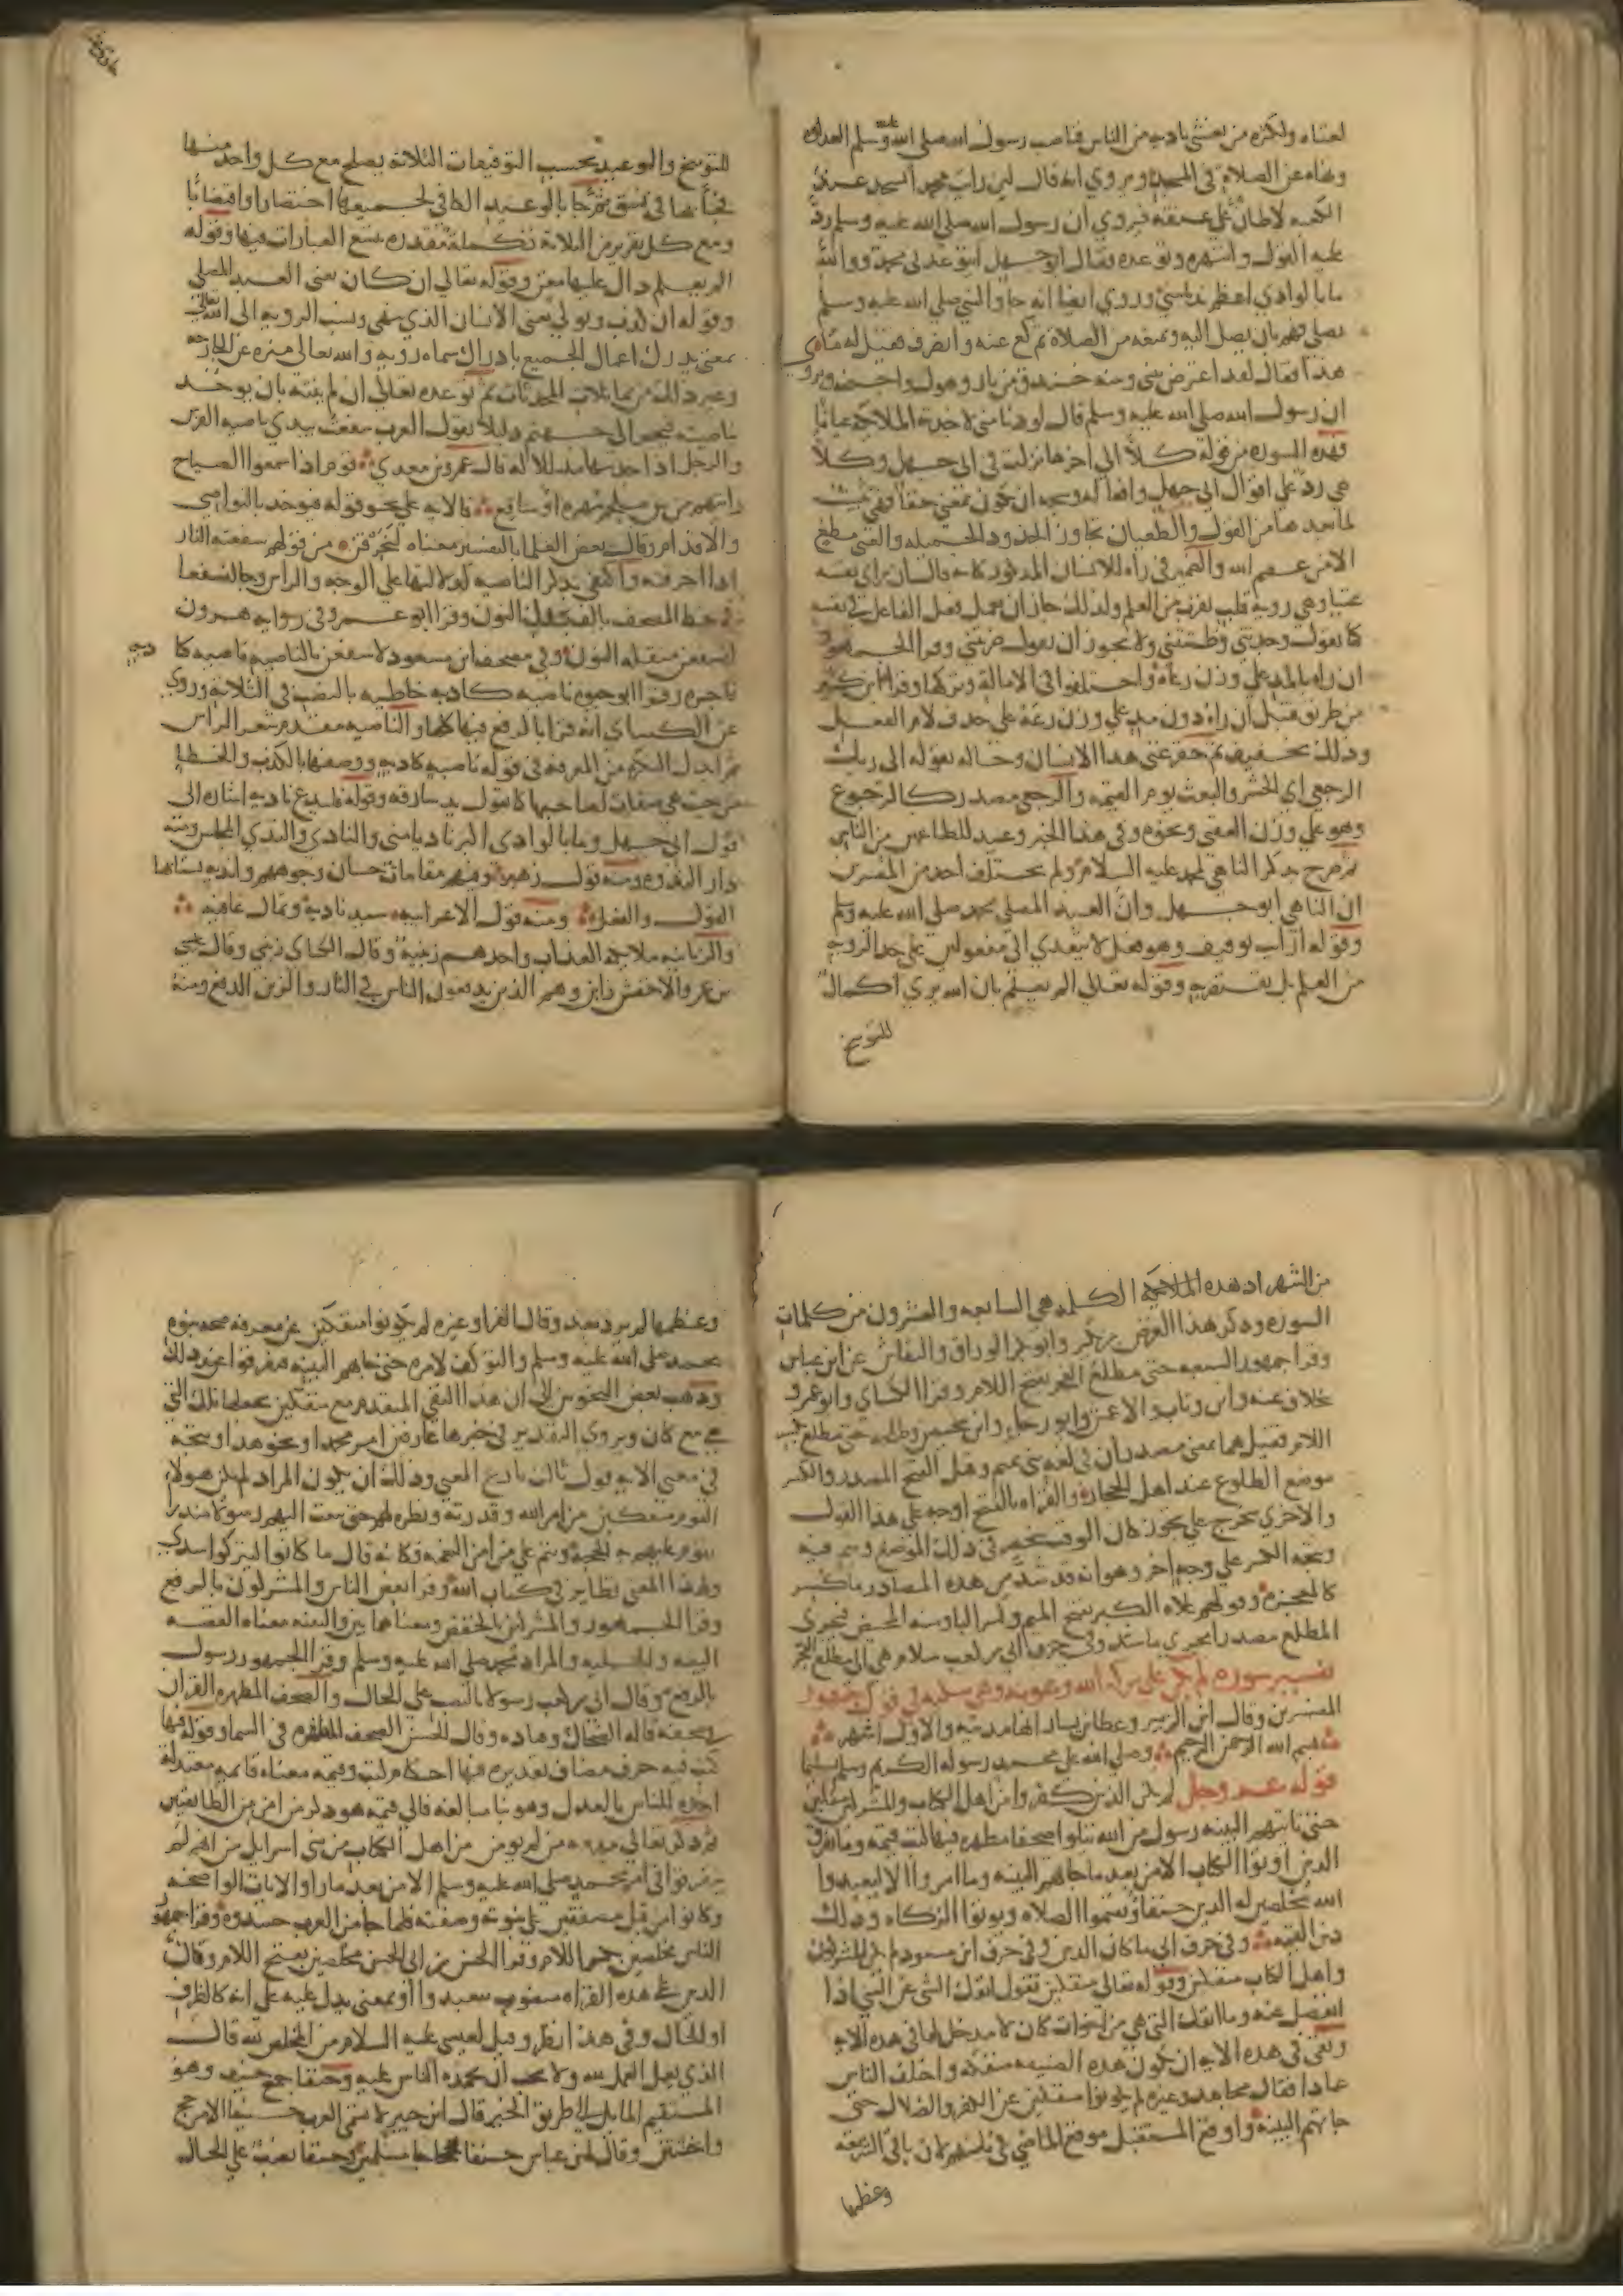 لغناه ولكثرة من يغشى ناديه من الناس فناصب رسول الله صلى الله عليه وسلم العداوة
ونهاه عن الصلاة في المسجد ويروى انه قال لين رايت محمدا يسجد عند
الكعبة لاطأن على عنقه فيروى ان رسول الله صلى الله عليه وسلم رد
عليه القول وانتهره وتوعده فقال ابو جهل ايتوعدني محمد ووالله
ما بالوادي اعظم نديا مني وروي ايضا انه جا والنبي صلى الله عليه وسلم
يصلي فهم بان يصل اليه ويمنعه من الصلاة ثم كع عنه وانصرف فقيل له ما
هذا فقال لقد اعترض بيني وبينه خندق من نار وهول واجنحة ويروى
ان رسول الله صلى الله عليه وسلم قال لو دنا مني لاخذته الملائكة عيانا
فهذه السورة من قوله كلا الى اخرها نزلت في ابي جهل وكلا
هي رد على اقوال ابي جهل وافعاله ويتجه ان تكون بمعنى حقا فهي تثبيت
لما بعدها من القول والطغيان تجاوز الحدود الجميلة والغنى مطغ
الا من عصم الله والضمير في رآه للانسان المذكور كانه قال ان راى نفسه
غنيا وهي روية قلب تقرب من العلم ولذلك جاز ان يعمل فعل الفاعل في نفسه
كما تقول وجدتني وظننتني ولا يجوز ان تقول ضربتني وقرا الجمهور
ان راه بالمد على وزن رعاه واختلفوا في الامالة وتركها وقرا ابن كثير
من طريق قنبل ان راه دون مد على وزن رعه على حذف لام الفعل
وذلك تخفيف ثم حقر غنى هذا الانسان وحاله بقوله الى ربك
الرجعى اي الحشر والبعث يوم القيمة والرجعى مصدر كالرجوع
وهو على وزن العقبى ونحوه وفي هذا الخبر وعيد للطاغين من الناس
ثم صرح بذكر الناهي لمحمد عليه السلام ولم يختلف احد من المفسرين
ان الناهي ابو جهل وان العبد المصلي محمد صلى الله عليه وسلم
وقوله ارايت توقيف وهو فعل لا يتعدى الى مفعولين على حد الروية
من العلم بل يقتصر به وقوله تعالى الم يعلم بان الله يرى اكمال
للتوبيخ
للتوبيخ والوعيد بحسب التوقيفات الثلاثة يصلح مع كل واحد منها
يجآ بها في نسق ثم جا بالوعيد الكافي لجميعها اختصارا واقتضابا
ومع كل تقرير من الثلاثة تكملة مقدرة تتسع العبارات فيها وقوله
الم يعلم دال عليها مغن وقوله تعالى ان كان يعني العبد المصلي
وقوله ان كذب وتولى يعني الانسان الذي ينهى ونسب الروية الى الله تعالى
بمعنى يدرك اعمال الجميع بادراك سماه روية والله تعالى منزه عن الجارحة
وغير ذلك من مماثلات المحدثات ثم توعده تعالى ان لم ينته بان يوخذ
بناصيته فيجر الى جهنم ذليلا تقول العرب سفعت بيدي ناصية الفرس
والرجل اذا جذبتها مذللا له قال عمرو بن معدي قوم اذا سمعوا الصياح
رايتهم من بين ملجم مهره او سافع فالاية على نحو قوله فيوخذ بالنواصي
والاقدام وقال بعض العلما بالتفسير معناه لنحرقنه من قولهم سفعته النار
اذا احرقته واكتفى بذكر الناصية لدلالتها على الوجه والراس وجا لنسفعا
في خط المصحف بالف بدل النون وقرا ابو عمرو في رواية هرون
لنسفعن مثقلة النون وفي مصحف ابن مسعود لاسفعن بالناصية ناصية كا
ذبة
فاجرة وقرا ابو حيوة ناصية كاذبة خاطية بالنصب في الثلاثة وروي
عن الكساي انه قرا بالرفع فيها كلها والناصية مقدم شعر الراس
ثم ابدل النكرة من المعرفة في قوله ناصية كاذبة ووصفها بالكذب والخطا
من حيث هي صفات لصاحبها كما تقول يد سارقة وقوله فليدع ناديه اشارة الى
قول ابي جهل وما بالوادي اكبر ناديا مني والنادي والندي المجلس ومنه
دار الندوة ومنه قول زهير وفيهم مقامات حسان وجوههم واندية ينتابها
القول والفعل ومنه قول الاعرابية سيد ناديه وثمال عافيه
والزبانية ملائكة العذاب واحدهم زبنية وقال الكساي زبني وقال عيسى
بن عمر والاخفش زابن وهم الذين يدفعون الناس في النار والزبن الدفع ومنه
من الشهر اذ هذه الكلمة هي السابعة والعشرون من كلمات
السورة وذكر هذا الغرض ابن بكير وابو بكر الوراق والنقاش عن ابن عباس
وقرا جمهور السبعة حتى مطلع الفجر بفتح اللام وقرا الكساي وابو عمرو
بخلاف عنه وابن وثاب والاعمش وابو رجاء وابن محيصن وطلحة حتى مطلع بكسر
اللام فقيل هما بمعنى مصدران في لغة بني تميم وقيل الفتح المصدر والكسر
موضع الطلوع عند اهل الحجاز والقراة بالفتح اوجه على هذا القول
والاخرى تتخرج على تجوز كان الوقت ينحصر في ذلك الموضع ويتم فيه
ويتجه الكسر على وجه اخر وهو انه قد شذ من هذه المصادر ما كسر
كالمعجزة وقولهم علاه المكبر بفتح الميم وكسر البا ومنه المحيض فيجرى
المطلع مصدرا مجرى ما شذ وفي حرف ابي بن كعب سلام هي الى مطلع الفجر
تفسير سورة لم يكن على بركة الله وعونه وهي مكية في قول جمهور
المفسرين وقال ابن الزبير وعطا بن يسار انها مدنية والاول اشهر
بسم الله الرحمن الرحيم وصلى الله على محمد رسوله الكريم وسلم تسليما
قوله عز وجل لم يكن الذين كفروا من اهل الكتاب والمشركين منفكين
حتى تاتيهم البينة رسول من الله يتلوا صحفا مطهرة فيها كتب قيمة وما تفرق
الذين اوتوا الكتاب الا من بعد ما جاتهم البينة وما امروا الا ليعبدوا
الله مخلصين له الدين حنفا ويقيموا الصلاة ويوتوا الزكاة وذلك
دين القيمة وفي حرف ابي ما كان الذين وفي حرف ابن مسعود لم يكن المشركون
واهل الكتاب منفكين وقوله تعالى منفكين تقول انفك الشي عن الشي اذا
انفصل عنه وما انفك التي هي من اخوات كان لا مدخل لها في هذه الاية
ونفى في هذه الاية ان تكون هذه الصنيعة منفكة واختلف الناس
عما ذا فقال مجاهد وغيره لم يكونوا منفكين عن الكفر والضلال حتى
جاتهم البينة واوقع المستقبل موقع الماضي في تاتيهم لان باقي الشريعة
وعظمها
وعظمها لم يرد بعد وقال الفرا وغيره لم يكونوا منفكين عن معرفة صحة نبوة
محمد صلى الله عليه وسلم والتوكف لامره حتى جاتهم البينة فتفرقوا عند ذلك
وذهب بعض النحويين الى ان هذا النفي المتقدم مع منفكين يجعلها تلك التي
هي مع كان ويروى التقدير في خبرها عارفين امر محمد او نحو هذا ويتجه
في معنى الاية قول ثالث بارع المعنى وذلك ان يكون المراد لم يكن هولاء
القوم منفكين من امر الله وقدرته ونظره لهم حتى يبعث اليهم رسولا منذرا
تقوم عليهم به الحجة وتتم على من امن النعمة فكانه قال ما كانوا ليتركوا سدى
ولهذا المعنى نظاير في كتاب الله وقرا بعض الناس والمشركون بالرفع
وقرا الجمهور والمشركين بالخفض ومعناهما بين والبينة معناه القصة
البينة والجلية والمراد محمد صلى الله عليه وسلم وقرا الجمهور رسول
بالرفع وقرا ابي بن كعب رسولا بالنصب على الحال والصحف المطهرة القران
في صحفه قاله الضحاك وقتادة وقال الحسن الصحف المطهرة في السما وقوله فيها
كتب فيه حرف مضاف تقديره فيها احكام كتب وقيمة معناه قايمة معتدلة
اخذة للناس بالعدل وهو بنا مبالغة فالى قيمة هو ذكر من امن من الطايفتين
ثم ذكر تعالى مذمة من لم يومن من اهل الكتاب من بني اسرايل من انهم لم
يتفرقوا في امر محمد صلى الله عليه وسلم الا من بعد ما راوا الايات الواضحة
وكانوا من قبل متفقين على نبوته وصفته فلما جا من العرب حسدوه وقرا جمهور
الناس مخلصين بكسر اللام وقرا الحسن بن ابي الحسن مخلصين بفتح اللام وكان
الدين على هذه القراة منصوب ببعد او بمعنى يدل عليه على انه كالظرف
او الحال وفي هذا نظر وقيل لعيسى عليه السلام من المخلص لله قال
الذي يعمل العمل لله ولا يحب ان يحمده الناس عليه وحنفا جمع حنيف وهو
المستقيم المايل الى طريق الخير قال ابن جبير لا تسمي العرب حنيفا الا من حج
واختتن وقال ابن عباس حنفا حجاجا مسلمين وحنفا نصب على الحال